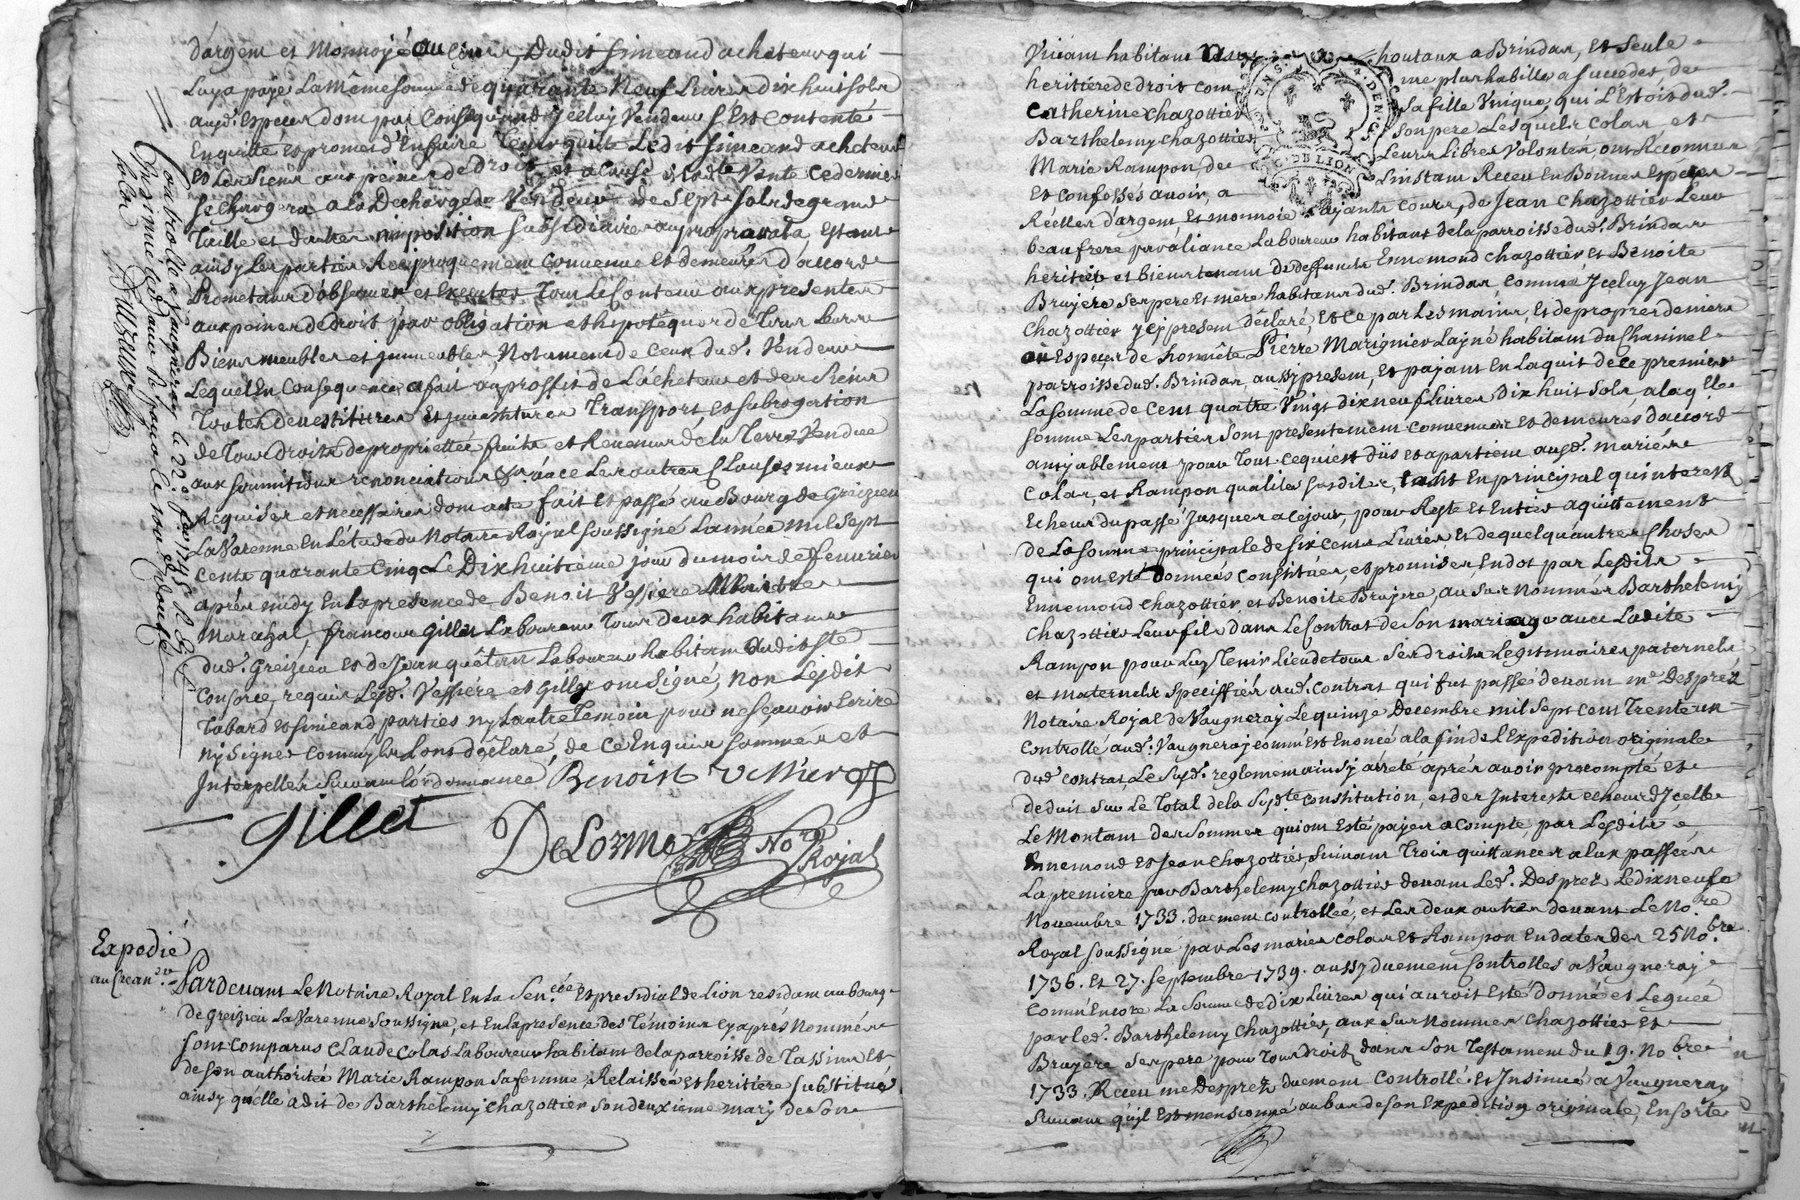 d'argent et Monnoyé au Cours, Dudit Simeand acheteur qui
Luy a payé La même somme de quarante Neuf Livres dix huit sols
aud. Especes dont par Consequend jceluy Vendeur s'Est Contenté
Enquitté et promet d'En faire Tenir quitte Ledit Simeand acheteur
et Les siens aux peines de Droit, et a Cause de Ladte Vente ce dernier
se chargera a la Decharge du Vendeur de Sept sols de grande
Taille et d'autres imposition subsidiaires au proprorata Estant
ainsy Les parties Reciproquement convenue et demeurés d'accord
Promettant d'observer et Executer Tout Le Contenu aux presentes
aux peines de Droit par obligation et hipoteque de Tous Leurs
Biens meubles et jmmeubles, Notament de Ceux dud. Vendeur
Lequel En Consequence a fait au proffit de L'acheteur et des siens
Toutes Devestitures Et jnvestitures Transport et subrogation
de Tous droits de proprietté fruits et Revenus de la Terre Vendue
aux soumitions renonciations & avec Les autres Clauses mieux
Requises et necessaires dont acte fait et passé au Bourg de Greizieu
La Varenne En L'étude du Notaire Royal soussigné L'année mil sept
cents quarante Cinq Le Dixhuitieme jour du mois de fevrier
aprés midy En La presence de Benoit Vessiere Maitre
Marechal, francois Gillet Laboureur Tous deux habitants
dud. Greizieu et de Jean quêtan Laboureur habitant Audit Ste
Consorce, requis Lesd. Vessiere et Gillet ont signé, non Lesdit
Tabard et Simeand parties ny L'autre Temoin pour ne sçavoir Ecrire
Ny signer comm'jls L'ont déclaré de Ce Enquis sommés et
Interpellés suivant L'ordonnance, Benoist Vessiere
Gillet
DeLorme Nore Royal
Controllé a Vaugneray le 22e fev. 1745 R Et
Expedié
au Crean.er
Pardevant Le Notaire Royal En La Sencée Et presidial de Lion residant au bourg
de Greizieu La Varenne soussigné, et En La presence des Témoins cy aprés Nommés
sont Comparus Claude Colas Laboureur habitant de la parroisse de Tassins Et
de son authorité Marie Rampon sa femme, Relaissée et heritiere substitué
ainsy qu'elle a dit de Barthelemy Chazottier son deuxieme mary de son
Vivant habitant
houtaux a Brindas, Et seule
heritiere de droit com
me plus habille a succeder, de
Catherine Chazottier
sa fille Vnique, qui L'Etoit dud.
Barthelemy Chazottier
son pere Lesquels Colas et
Marie Rampon, de
Leurs Libres Volontés, ont Reconnus
Et confessés avoir, a
L'instant Receu En Bonnes Especes
Réelles d'argent Et monnoie ayants cours, de Jean Chazottier Leur
beaufrere par aliance Laboureur habitant de la parroisse dud. Brindas
heritier et Bienstenant de deffunts Ennemond Chazottier Et Benoite
Bruyére ses pere Et mere habitans dud. Brindas, comme Jceluy Jean
Chazottier y cy present déclaré, Et Ce par Les mains, Et de propres deniers
en Especes de honnête Pierre Marignier Layné habitant du Chaninel
parroisse dud. Brindas, aussy present, Et payant En Laquit de ce premier
La somme de Cent quatre Vingt dix neuf Livres Dix huit sols, a laq.elle
somme Les parties sont presentement convenues et demeures d'accord
amyablement pour Tout ce qui est düs et apartient aud. mariés
Colas, et Rampon qualites susdites, tant En principal qu'interest
Echeus du passé Jusques a Céjour, pour Reste Et Entier aquittement
de La somme principale de six Cents Livres Et de quelqu'autres Choses
qui ont Esté Données Constituer, et promises, En dot par Lesdits
Ennemond Chazottier, et Benoite Bruyere, au sus Nommé Barthelemy
Chazottier Leur fils dans Le Contrat de son mariage avec Ladite
Rampon pour Luy Tenir Lieu de tous ses droits Legitimaires paternels
et maternels speciffiés aud. Contrat qui fut passé devant me Desprez
Notaire Royal de Vaugneray Le quinze Decembre mil sept cent Trente un
Controllé aud. Vaugneray comm'Est Enoncé a la fin de L'Expedition originale
dud. Contrat, Le susd. reglement ainsy arreté aprés avoir procompté Et
deduit sur Le Total de la susd.te constitution, et des Interests echeus d'Jcelle
Le Montant des Sommes qui ont Esté payées a Compte, par Lesdits
Ennemond Et Jean Chazottier, suivant Trois quittances a Eux passées
La premiére par Barthelemy Chazottier devant Led. Desprez Le dix neuf
Novembre 1733. duement controllée, et Les deux autres devant Le Nore
Royal soussigné par Les mariés Colas Et Rampon En dates des 25 Nobre
1736. Et 27. septembre 1739. aussy duement Controllés a Vaugneray
Comm'Encore La somme de Dix Livres qui auroit Esté donné et Leguée
par led. Barthelemy Chazottier, aux sus Nommés Chazottier Et
Bruyére ses pere pour Tous droits dans son Testament du 19. Nobre
1733. Receu me Desprez duement Controllé Et Insinué a Vaugneray
suivant qu'jl Est mensionné au bas de son Expedition originale, En sorte